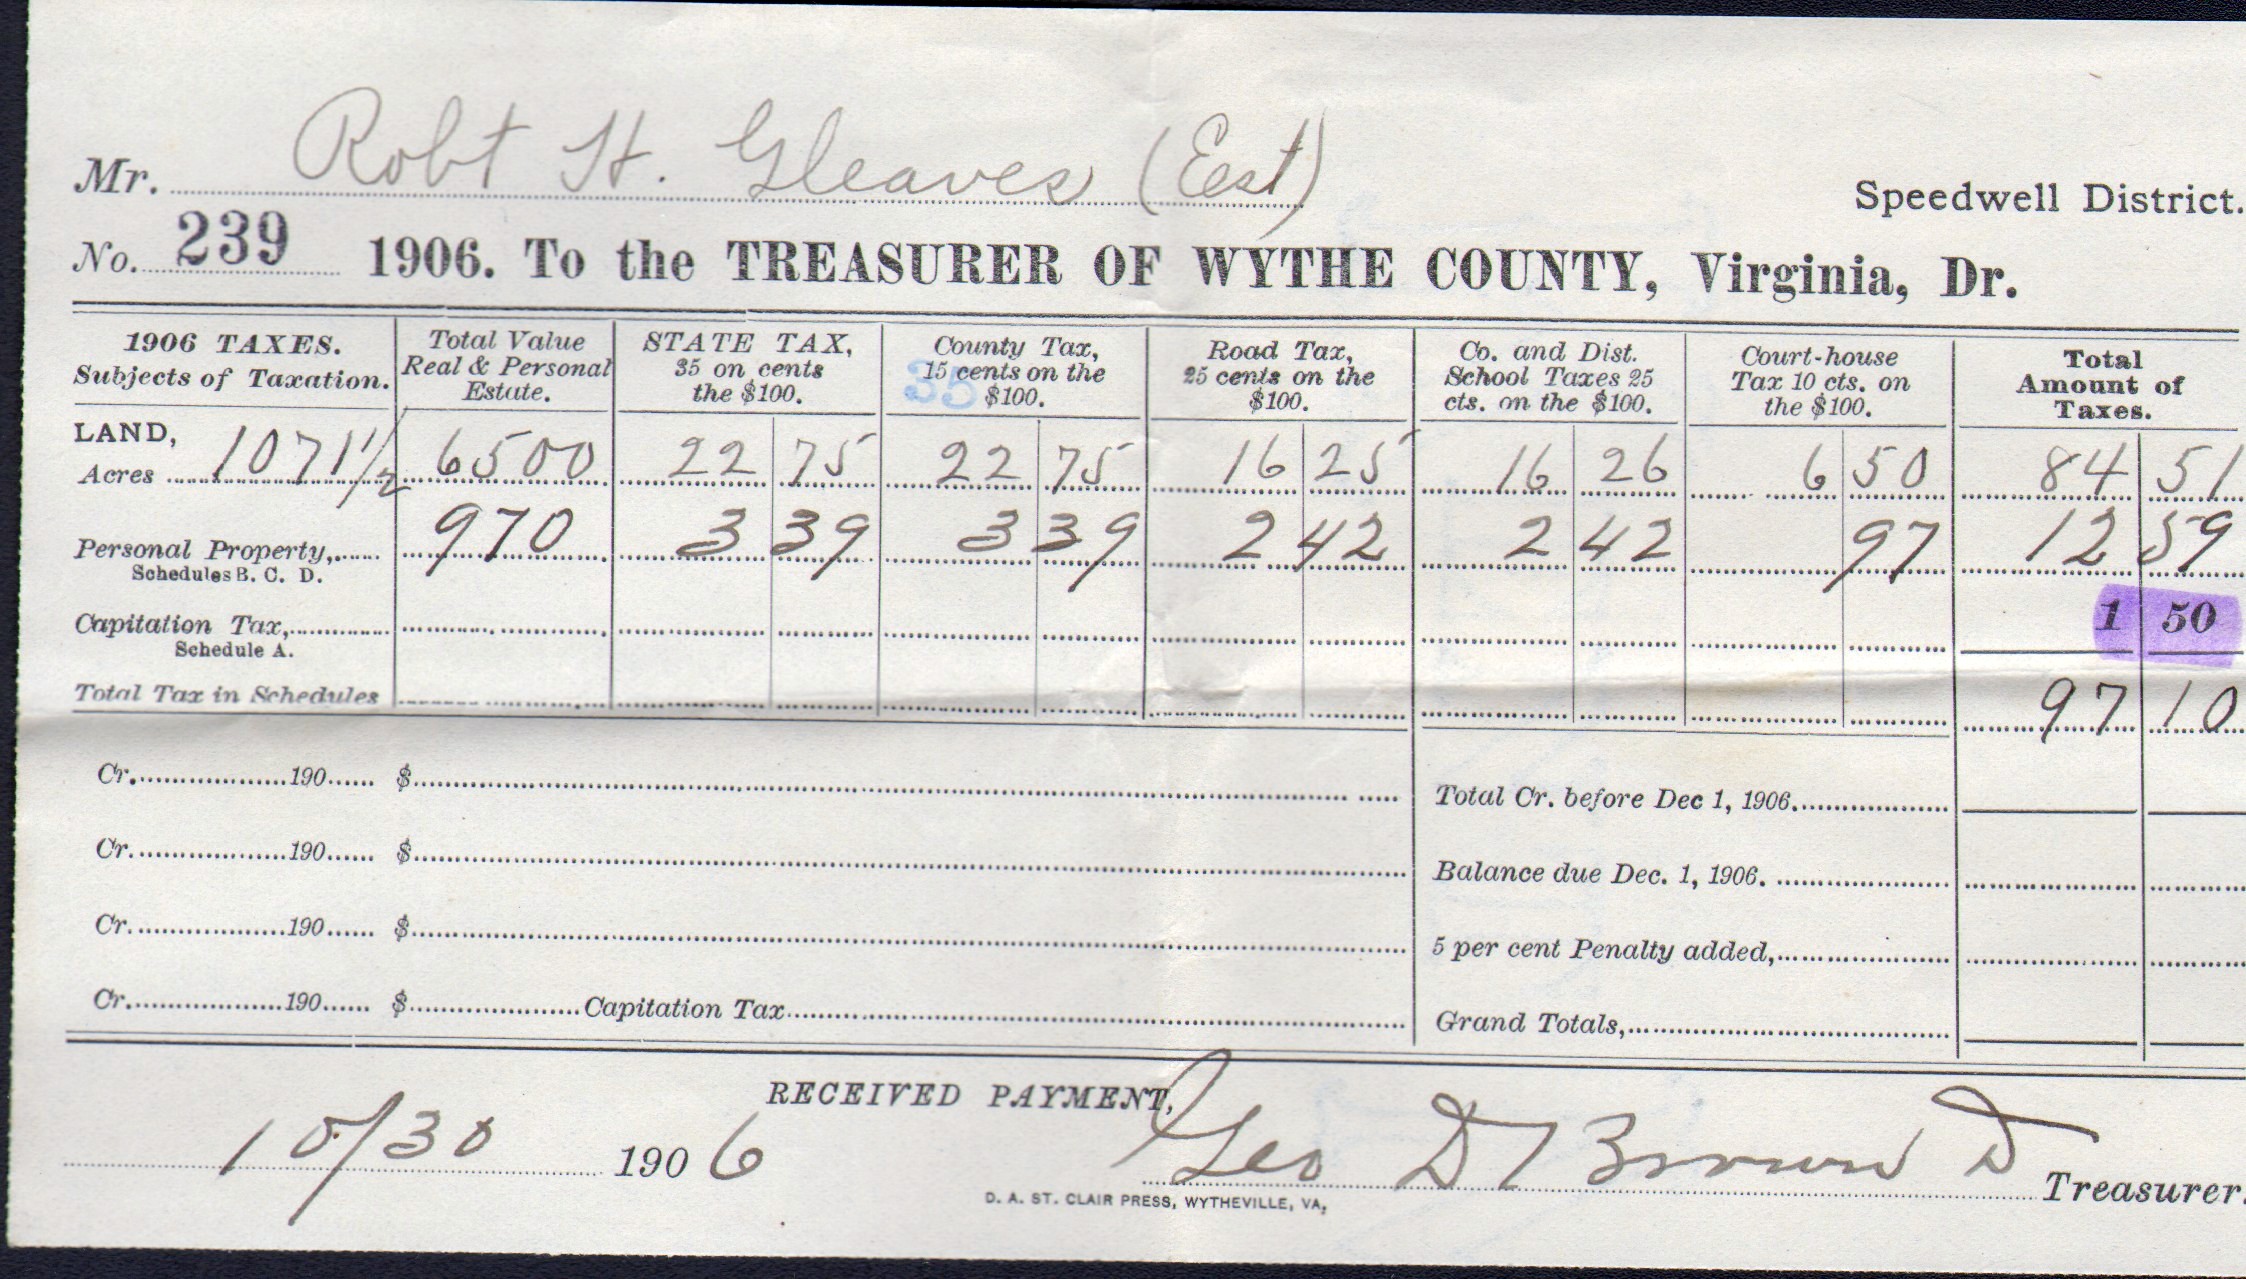 Mr. Robt H. Gleaves (Est)
Speedwell District.
No. 239 1906. To the TREASURER OF WYTHE COUNTY, Virginia, Dr.
1906 TAXES. Subjects of Taxation. | Total Value Real & Personal Estate. | STATE TAX, 35 on cents the $100. | County Tax, 15 cents on the $100. 35 | Road Tax, 25 cents on the $100. | Co. and Dist. School Taxes 25 cts. on the $100. | Court-house Tax 10 cts. on the $100. | Total Amount of Taxes.
LAND, Acres 1071 1/2 | 6500 | 22 75 | 22 75 | 16 25 | 16 26 | 6 50 | 84 51
Personal Property, Schedules B. C. D. | 970 | 3 39 | 3 39 | 2 42 | 2 42 | 97 | 12 59
Capitation Tax, Schedule A. | 1 50
Total Tax in Schedules | 97 10
Cr. 190 $
Total Cr. before Dec 1, 1906.
Cr. 190 $
Balance due Dec. 1, 1906.
Cr. 190 $
5 per cent Penalty added,
Cr. 190 $ Capitation Tax
Grand Totals,
RECEIVED PAYMENT,
10/30 1906 Geo D Brown D Treasurer.
D. A. ST. CLAIR PRESS, WYTHEVILLE, VA,